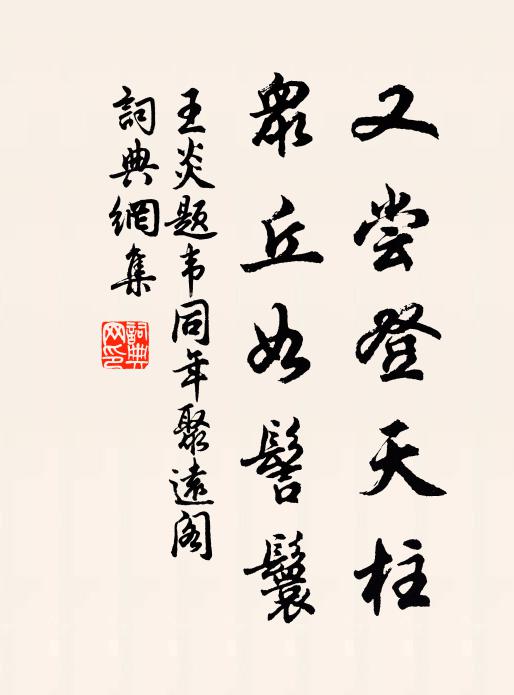 又尝登天柱
眾丘如髻鬟
王炎题韦同年聚遠阁
詞典網集
詞典网印